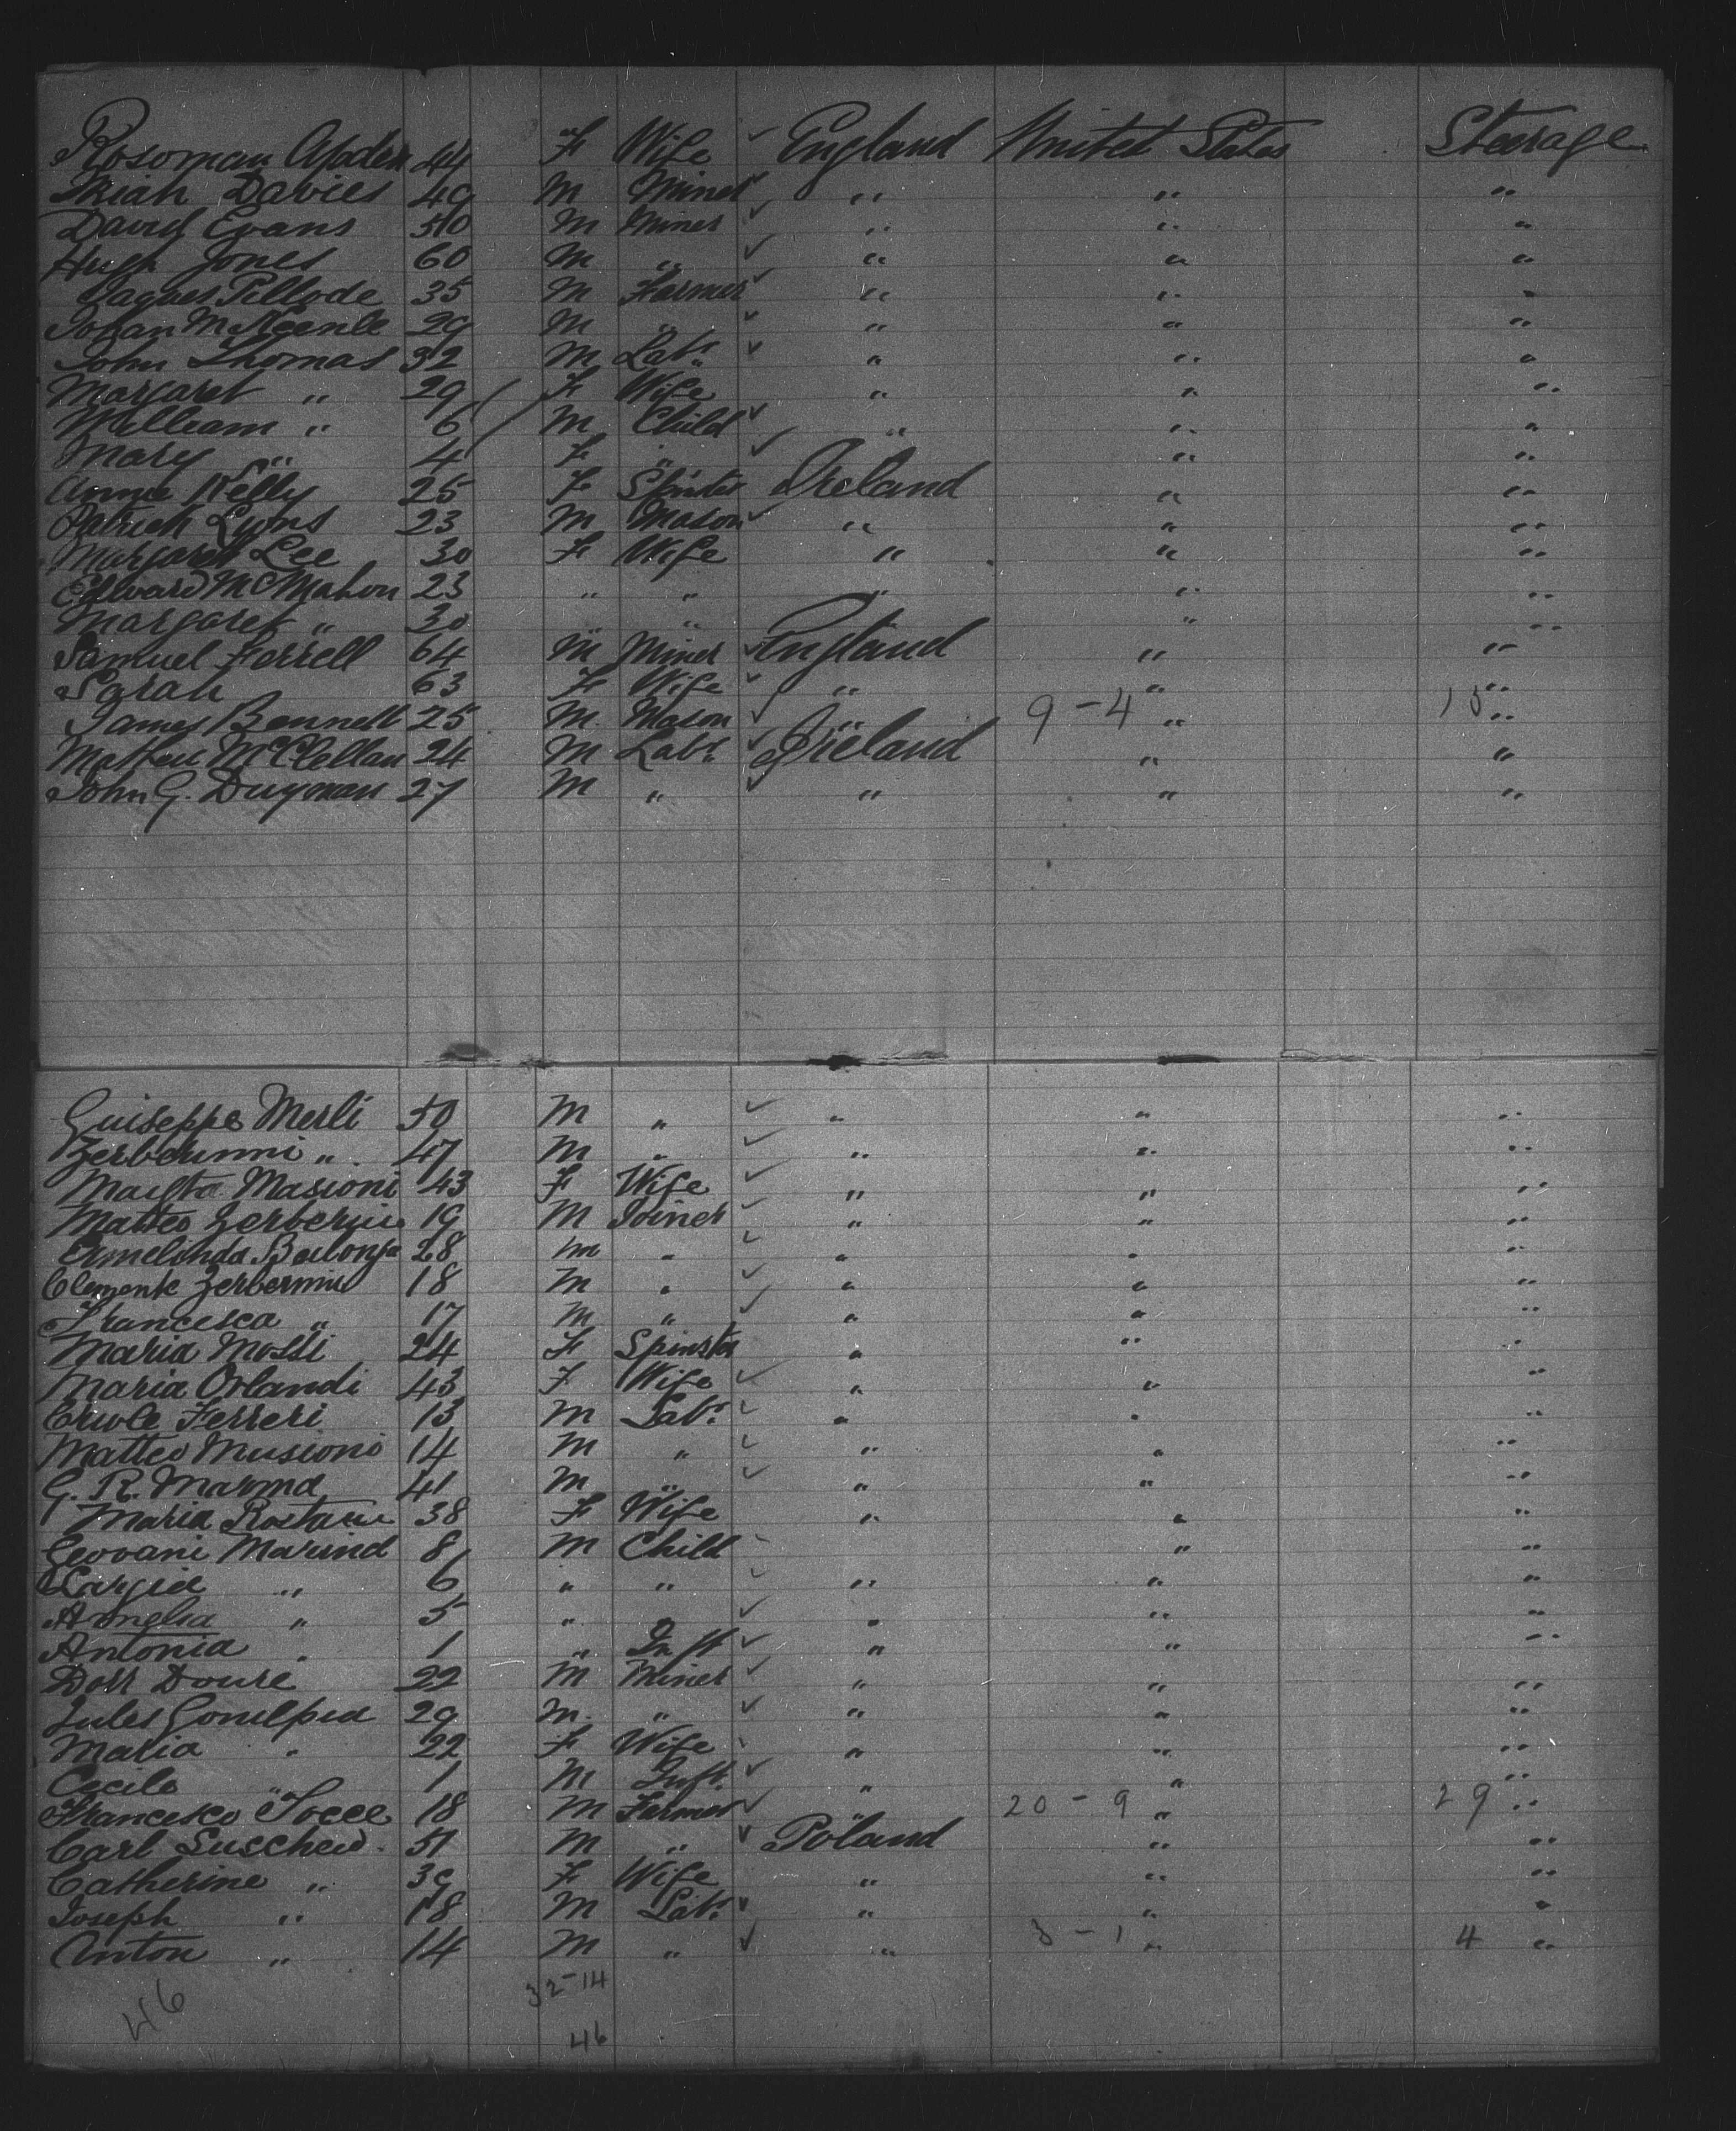 Rosoman Apden 44 F Wife ✓ England United States Steerage
Miah Davies 49 M Miner ✓ " " "
David Evans 50 M Miner ✓ " " "
Hugh Jones 60 M " ✓ " " "
Jaques Pellode 35 M Farmer ✓ " " "
Johan McKeenle 29 M " ✓ " " "
John Thomas 32 M Labr. ✓ " " "
Margaret " 29 F Wife " " "
William " 6 M Child ✓ " " "
Mary " 4 F " ✓ " "
Annie Kelly 25 F Spinster Ireland " "
Patrick Lyons 23 M Mason ✓ " " "
Margaret Lee 30 F Wife " " "
Edward McMahon 23 " " " " "
Margaret " 30 " " " "
Samuel Ferrell 64 M Miner ✓ England " "
Sarah 63 F Wife ✓ " " "
James Bennett 25 M. Mason ✓ " 9 - 4 " 13 "
Mathew McClellan 24 M Labr. ✓ Ireland " "
John G. Duynan 27 M " ✓ " " "
Guiseppe Merli 50 M " ✓ " " "
Zerberinni " 47 M " ✓ " " "
Masioni 43 F Wife ✓ " " "
Matteo 19 M Joiner ✓ " " "
Ermelinda 28 m " ✓ " " "
Clemente Zerbermini 18 M " ✓ " " "
Francesca " 17 M " ✓ " " "
Maria Mossi 24 F Spinster " " "
Maria Orlandi 43 F Wife ✓ " " "
Ercole Ferreri 13 M Labr. ✓ " " "
Matteo Musioni 14 M " ✓ " " "
G. R. Marind 41 M " ✓ " " "
Maria Rostani 38 F Wife " " "
Geovani Marind 8 M Child " "
" 6 " " ✓ " " "
Annelia " 5 " " ✓ " " "
Antonia " 1 " Inft ✓ " " "
Doure 22 M Miner ✓ " " "
Jules 29 M. " ✓ " " "
Maria " 22 F Wife " " "
Cecile " 1 M Inft. ✓ " " "
Francesco Socce 18 M Farmer ✓ " 20 - 9 " 29 "
Carl Luschew 51 M " ✓ Poland " "
Catherine " 39 F Wife " " "
Joseph " 18 M Labr. ✓ " " "
Anton " 14 M " ✓ " 3 - 1 " 4 "
46 32-14
46